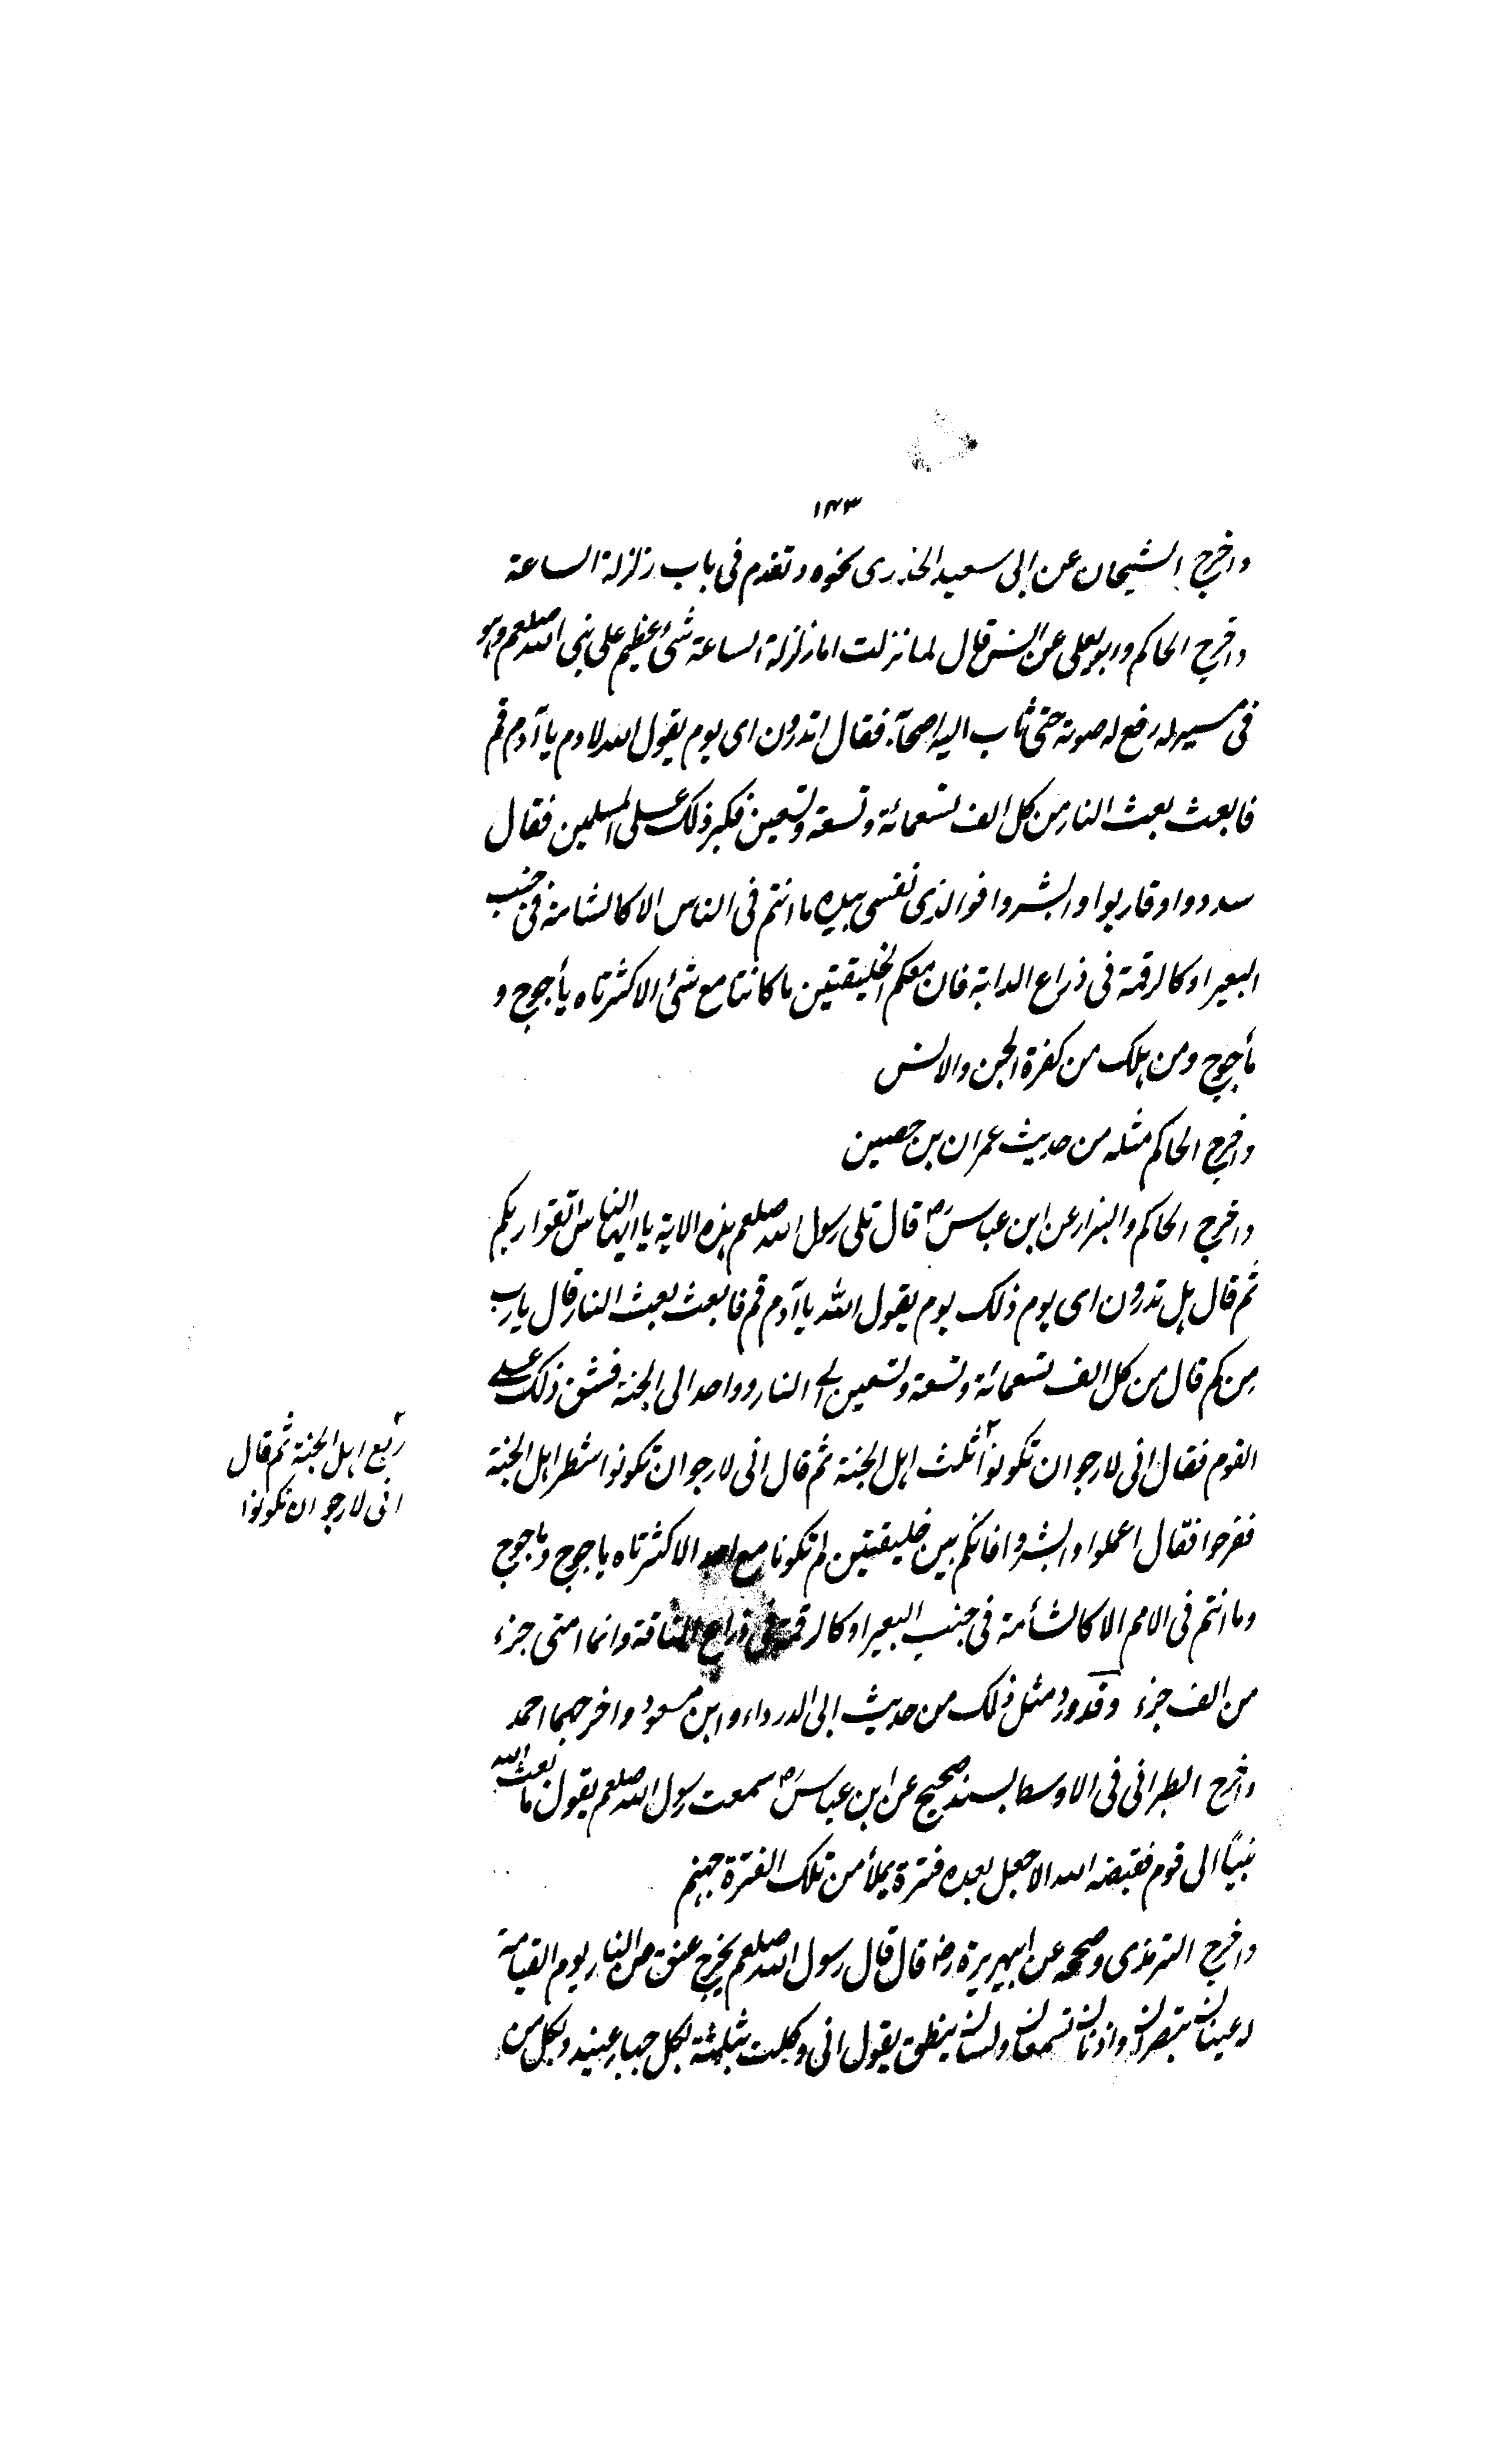 ١٤٣
واخرج الشيخان عن ابى سعيد الخدرى نحوه وتقدم فى باب زلزلة الساعة
واخرج الحاكم وابو يعلى عن انس قال لما نزلت ان زلزلة الساعة شئ عظيم على نبى الله صلعم وهو
فى مسير له رفع له صوته حتى ثاب اليه اصحابه فقال اتدرون اى يوم يقول الله لادم يا آدم قم
فابعث بعث النار من كل الف تسعمائة وتسعة وتسعين فكبر ذلك على المسلمين فقال
سددوا وقاربوا وابشروا فوالذى نفسى بيده ما انتم فى الناس الا كالشامة فى جنب
البعير او كالرقمة فى ذراع الدابة فان معكم الخليقتين ما كانتا مع شئ الا كثرتاه يأجوج و
مأجوج ومن هلك من كفرة الجن والانس
واخرج الحاكم مثله من حديث عمران بن حصين
واخرج الحاكم والبزار عن ابن عباس رض قال تلى رسول الله صلعم هذه الاية يا ايها الناس اتقوا ربكم
ثم قال هل تدرون اى يوم ذلك يوم يقول الله يا آدم قم فابعث بعث النار قال يا رب
من كم قال من كل الف تسعمائة وتسعة وتسعين الى النار وواحد الى الجنة فشق ذلك على
القوم فقال انى لارجو ان تكونوا ٢ ثلث اهل الجنة ثم قال انى لارجو ان تكونوا شطر اهل الجنة
ففرحوا فقال اعملوا وابشروا فانكم بين خليقتين لم تكونا مع احد الا كثرتاه ياجوج وماجوج
وما انتم فى الامم الا كالشأمة فى جنب البعير او كالرقمة فى ذراع الناقة وانما امتى جزء
من الف جزء وقد ورد مثل ذلك من حديث ابى الدرداء وابن مسعود واخرجهما احمد
واخرج الطبرانى فى الاوسط بسند صحيح عن ابن عباس رض سمعت رسول الله صلعم يقول ما بعث الله
نبيًا الى قوم فقبضه الله الا جعل بعده فترة يملأ من تلك الفترة جهنم
واخرج الترمذى وصححه عن ابيهريرة رض قال قال رسول الله صلعم يخرج عنق من النار يوم القيامة
له عينان تبصران واذنان تسمعان ولسان ينطق يقول انى وكلت بثلثة لكل جبار عنيد ولكل من
٢ ربع اهل الجنة ثم قال
انى لارجو ان تكونوا